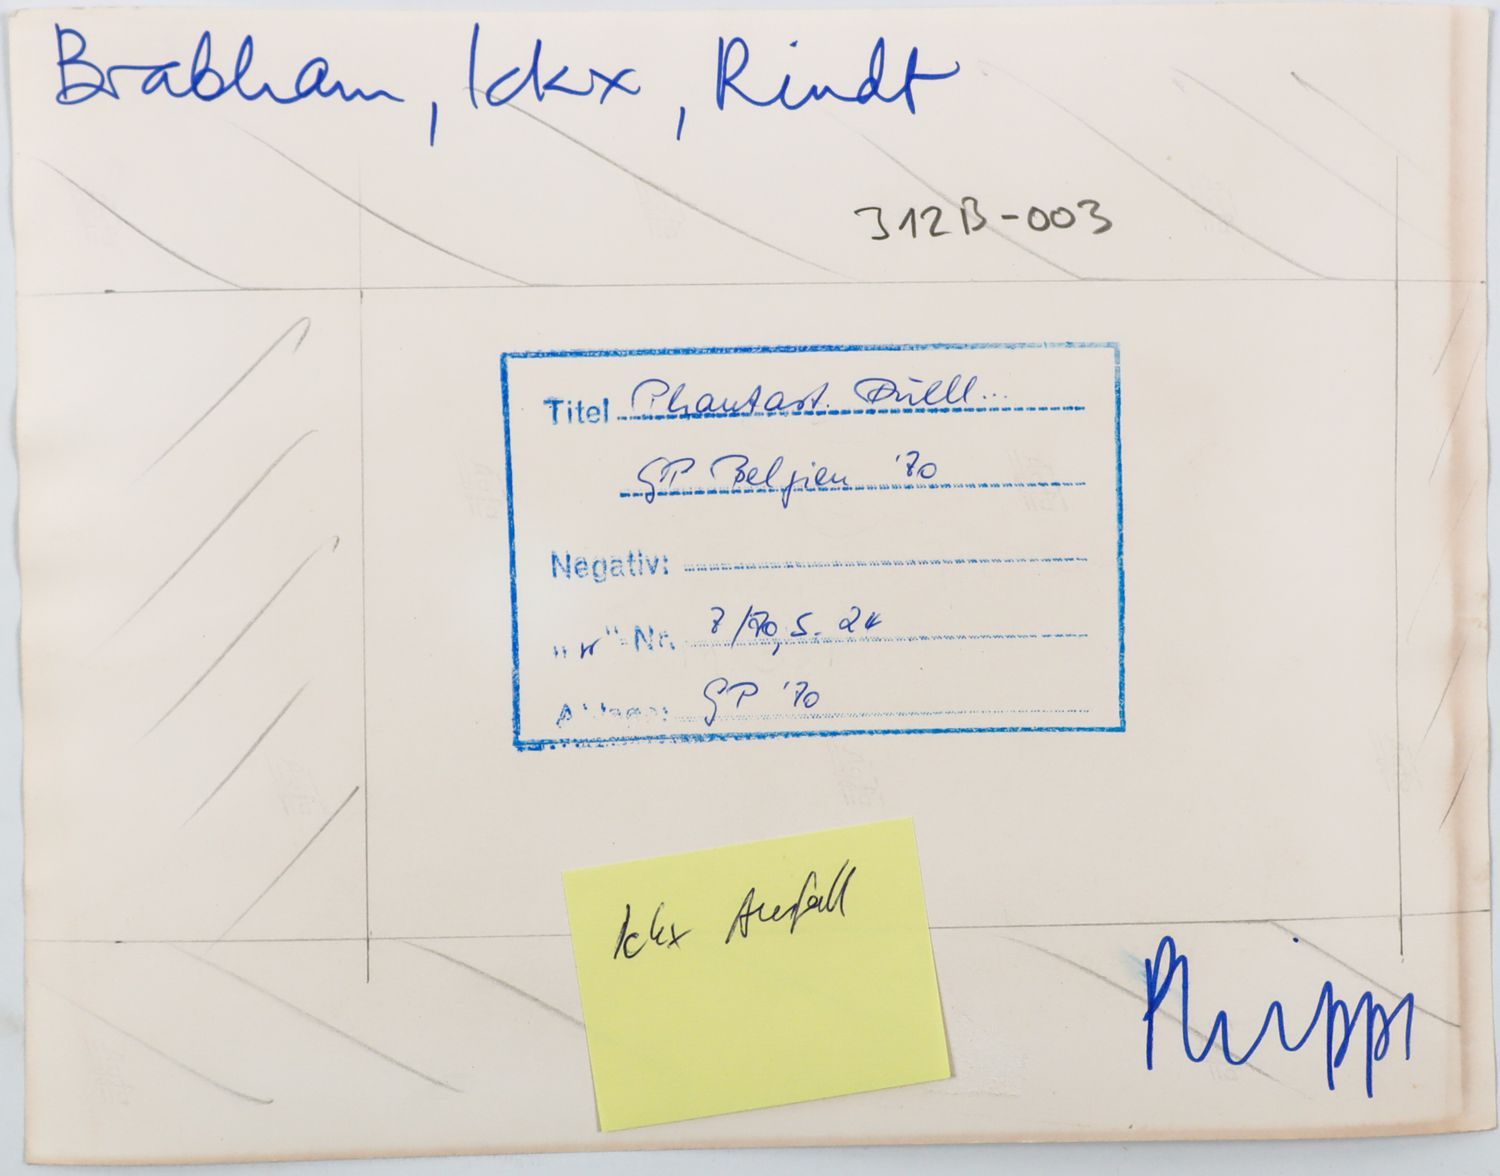 Brabham, Ickx, Rindt
312B-003
Titel Phantast. Duell...
GP Belgien '70
Negativ:
-Nr. 7/70, S. 24
GP '70
Ickx Ausfall
Phippi